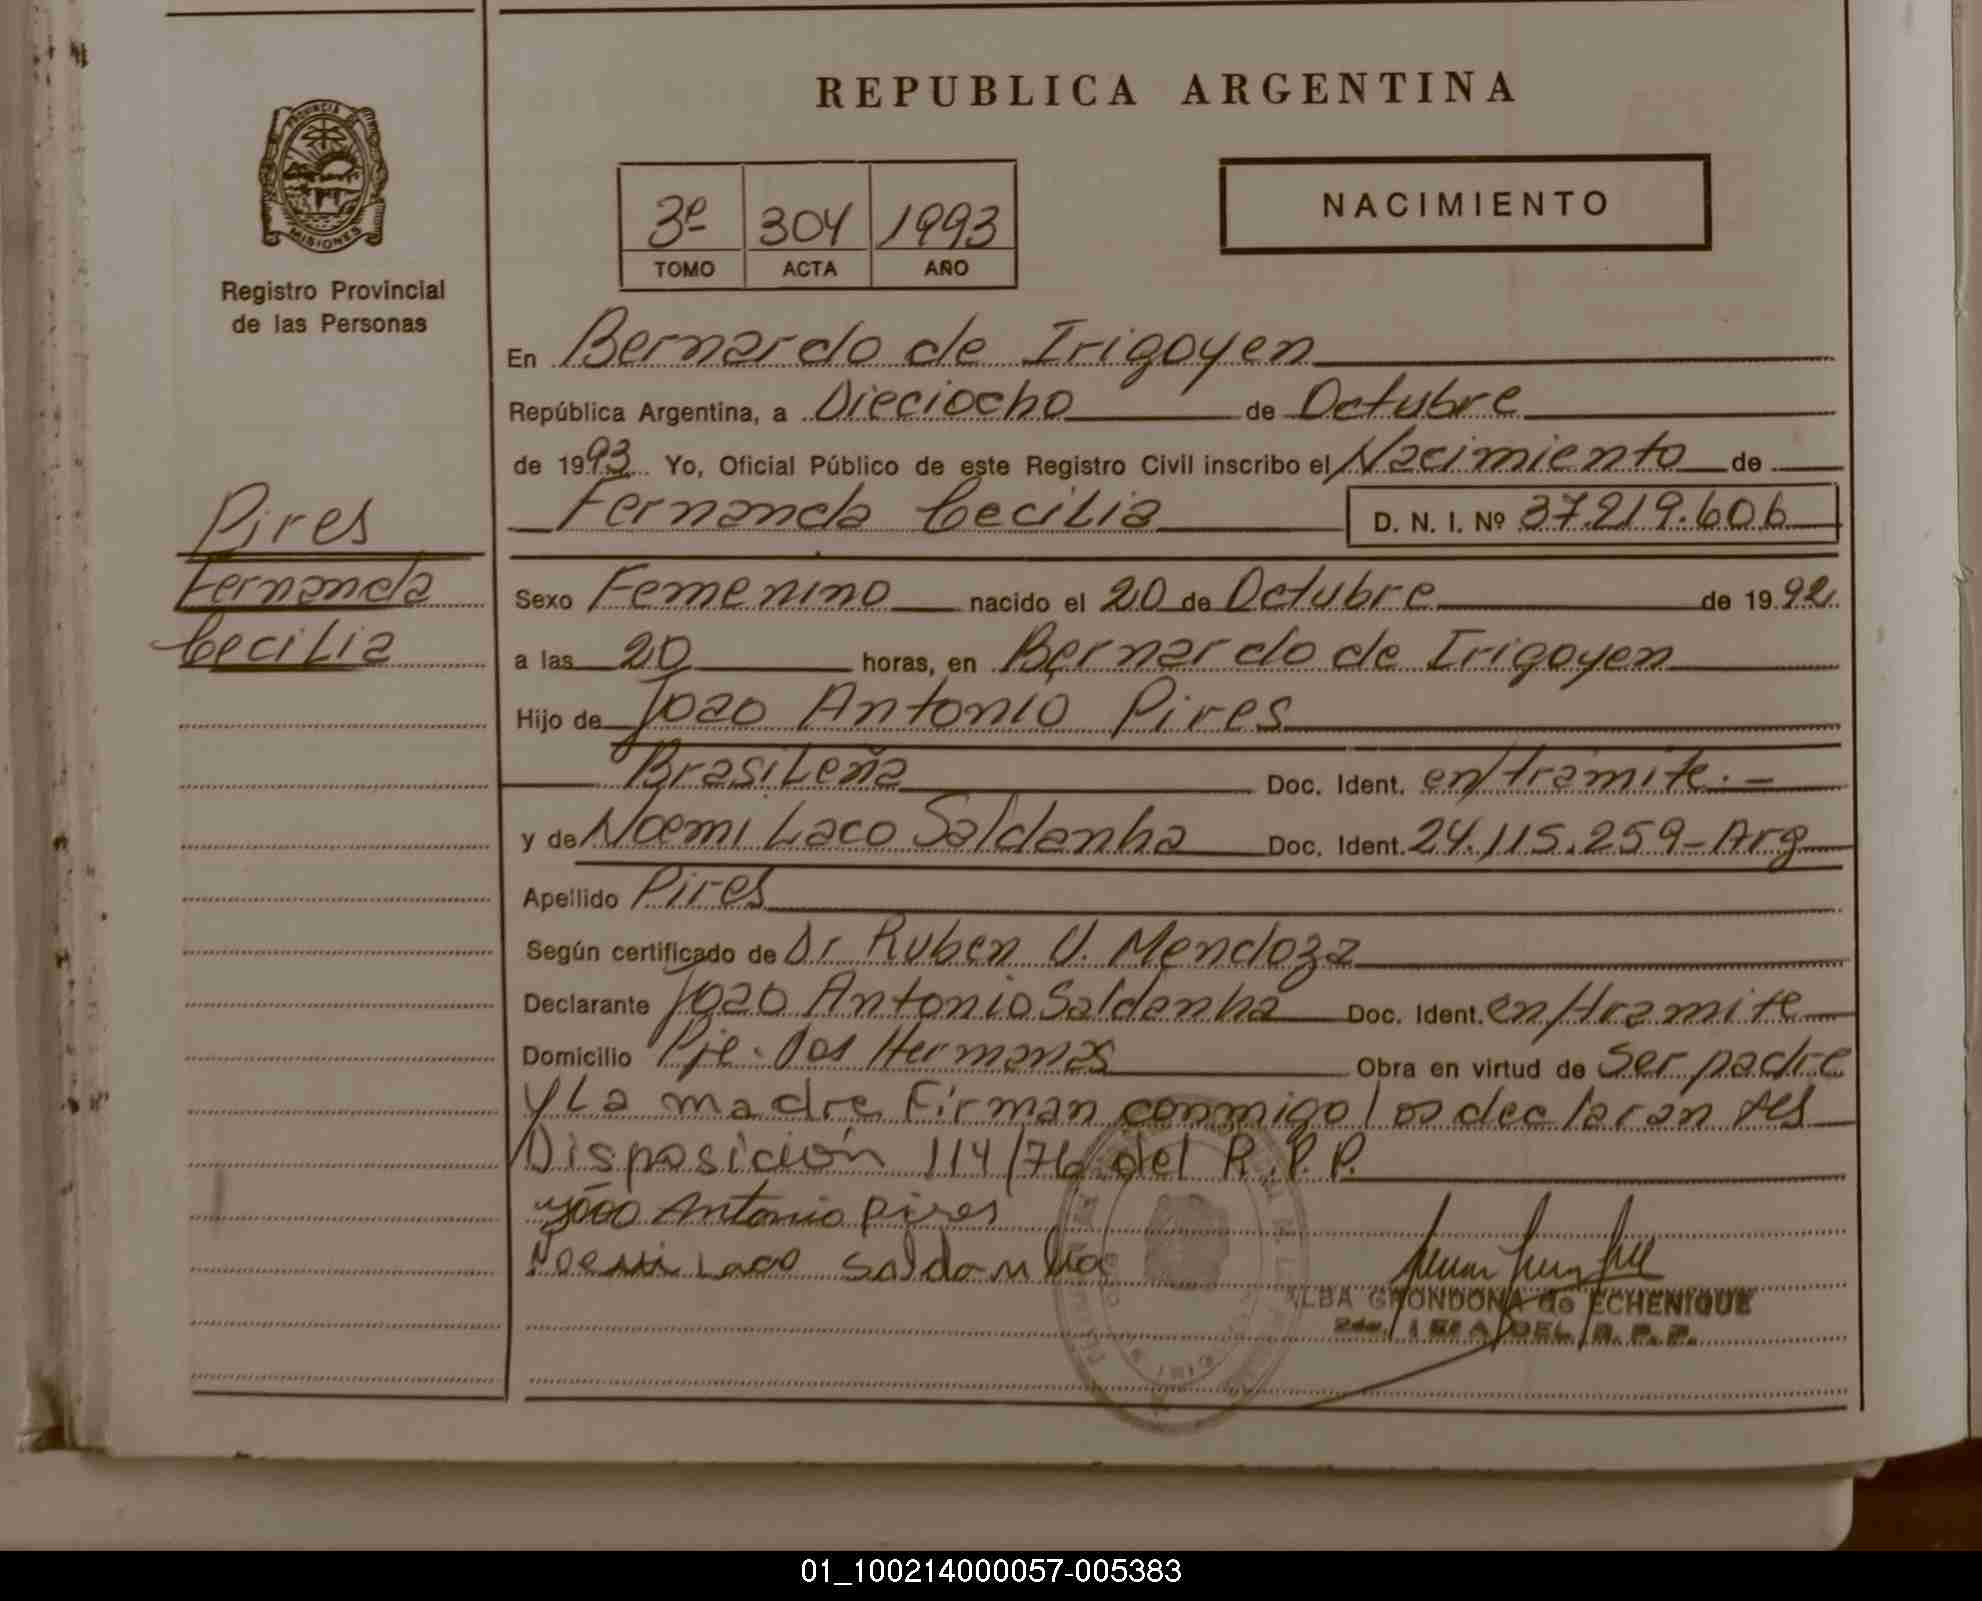 REPUBLICA ARGENTINA
PROVINCIA DE
MISIONES
Registro Provincial
de las Personas
3º 304 1993
TOMO ACTA AÑO
NACIMIENTO
En Bernardo de Irigoyen
República Argentina, a Dieciocho de Octubre
de 1993 Yo, Oficial Público de este Registro Civil inscribo el Nacimiento de
Fernanda Cecilia D. N. I. Nº 37.219.606
Pires
Fernanda
Cecilia
Sexo Femenino nacido el 20 de Octubre de 1992
a las 20 horas, en Bernardo de Irigoyen
Hijo de Joao Antonio Pires
Brasileña Doc. Ident. en/tramite.-
y de Noemi Laco Saldanha Doc. Ident. 24.115.259-Arg
Apellido Pires
Según certificado de Dr Ruben U. Mendoza
Declarante Joao Antonio Saldanha Doc. Ident. en/tramite
Domicilio Pje. Dos Hermanas Obra en virtud de Ser padre
y La madre Firman conmigo los declarantes
Disposición 114/76 del R.P.P.
João Antonio Pires
Noemi Laco Saldanha
ALBA GRONDONA de ECHENIQUE
DEL R. P. P.
01_100214000057-005383